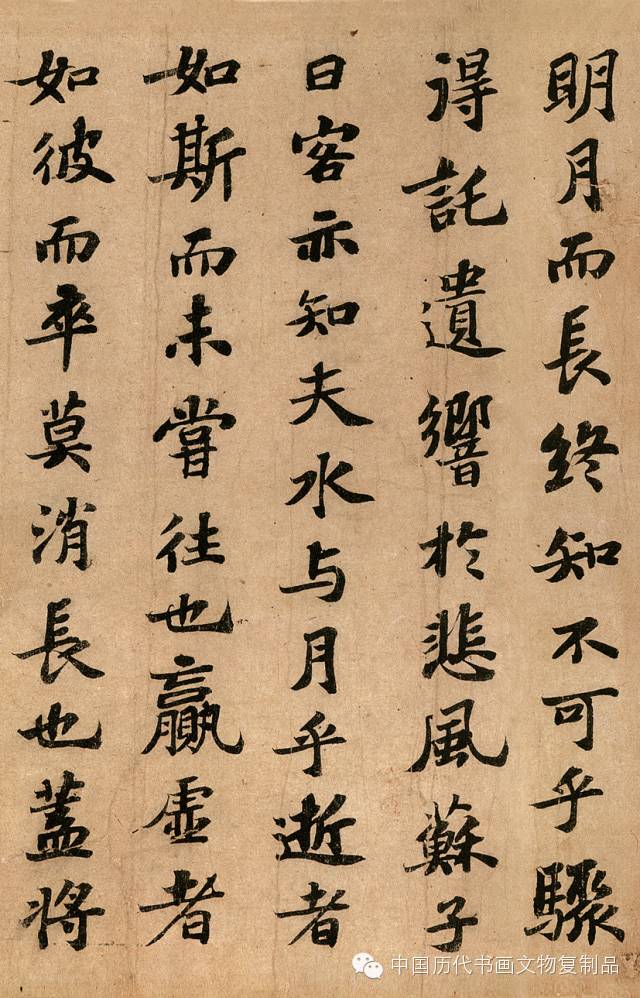 明月而長終知不可乎驟
得託遺響於悲風蘇子
曰客亦知夫水与月乎逝者
如斯而未嘗往也贏虛者
如彼而卒莫消長也蓋將
中国历代书画文物复制品